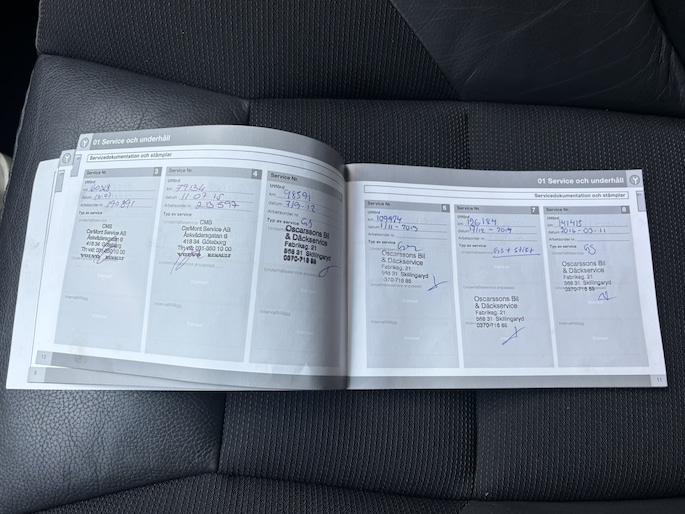 01 Service och underhåll
Servicedokumentation och stämplar
Service Nr. 3
Utförd
km
datum
Arbetsorder nr 190891
Typ av service
CMS
CarMont Service AB
Askvädersgatan 6
418 34 Göteborg
VOLVO RENAULT
Service Nr. 4
Utförd
km 79134
datum 11 07 15
Arbetsorder nr 213597
Typ av service
CMS
CarMont Service AB
Askvädersgatan 6
418 34 Göteborg
Tfn vxl: 031-960 10 00
VOLVO RENAULT
Service Nr.
Utförd
km 98591
datum 7/9-12
Arbetsorder nr
Typ av service GS
Oscarssons Bil
& Däckservice
Fabriksg. 21
568 31 Skillingaryd
0370-716 85
12
9
01 Service och underhåll
Servicedokumentation och stämplar
Service Nr. 6
Utförd
km 109974
datum 1/11-2013
Arbetsorder nr
Typ av service
Oscarssons Bil
& Däckservice
Fabriksg. 21
568 31 Skillingaryd
0370-716 85
Service Nr. 7
Utförd
km 126184
datum 9/12-2014
Arbetsorder nr
Typ av service
Oscarssons Bil
& Däckservice
Fabriksg. 21
568 31 Skillingaryd
0370-716 85
Service Nr. 8
Utförd
km 141415
datum 2016-03-11
Arbetsorder nr
Typ av service GS
Oscarssons Bil
& Däckservice
Fabriksg. 21
568 31 Skillingaryd
0370-716 85
11